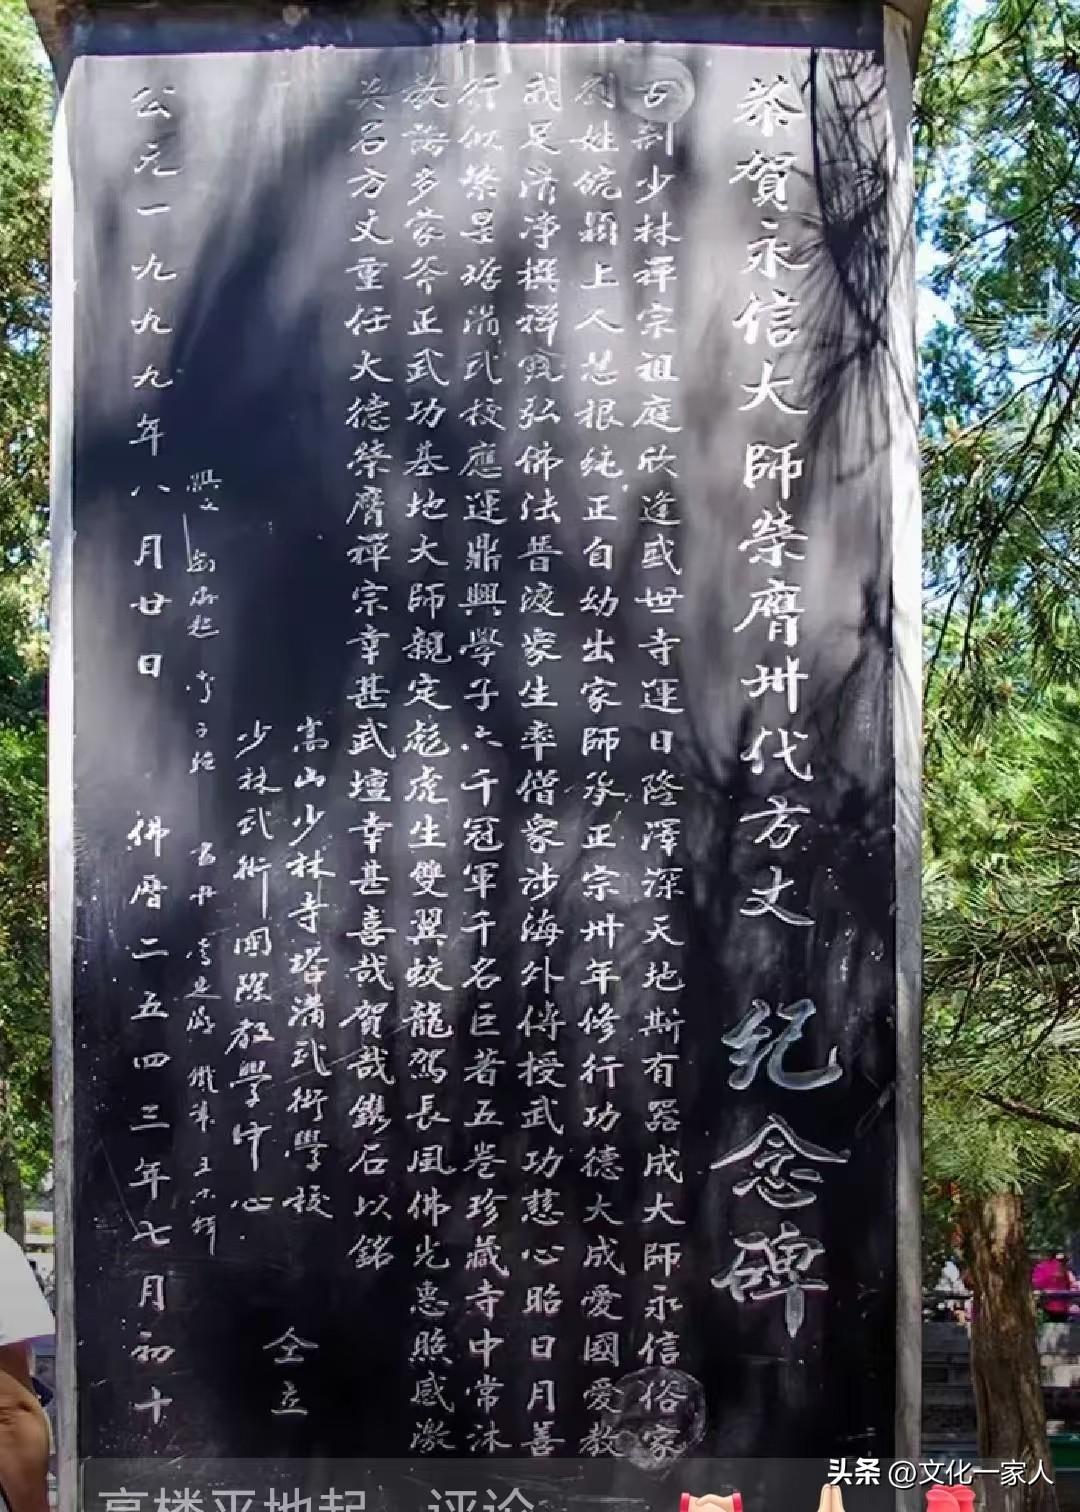 恭賀永信大師榮膺卅代方丈 纪念碑
古刹少林禅宗祖庭欣逢盛世寺運日隆澤深天地斯有器成大師永信俗家
刘姓皖潁上人慧根纯正自幼出家師承正宗卅年修行功德大成愛國愛教
戒足清净撰禅究弘佛法普渡眾生率僧眾涉海外傳授武功慈心昭日月善
行似繁星塔溝武校應運鼎興學子六千冠軍千名巨著五卷珍藏寺中常沐
教誨多蒙斧正武功基地大師親定彪虎生雙翼蛟龍駕長風佛光惠照感激
英名方丈重任大德榮膺禅宗幸甚武壇幸甚喜哉賀哉鐫石以銘
嵩山少林寺塔溝武術學校
少林武術國際教學中心
仝立
公元一九九九年八月廿日 佛曆二五四三年七月初十
高楼平地起 评论
头条 @文化一家人